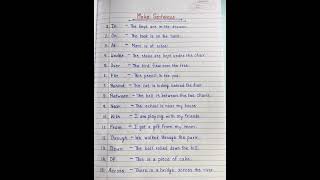 Make Sentences
1. In - The toys are in the drawer.
2. On - The book is on the table.
3. At - Mere is at school.
4. Under - The shoes are kept under the chair.
5. Over - The bird flew over the tree.
6. For - This pencil is for you.
7. Behind - The cat is hiding behind the door.
8. Between - The ball is between the two chairs.
9. Near - The school is near my house.
10. With - I am playing with my friends.
11. From - I got a gift from my mom.
12. Through - We walked through the park.
13. Down - The ball rolled down the hill.
14. Of - This is a piece of cake.
15. Across - There is a bridge across the river.